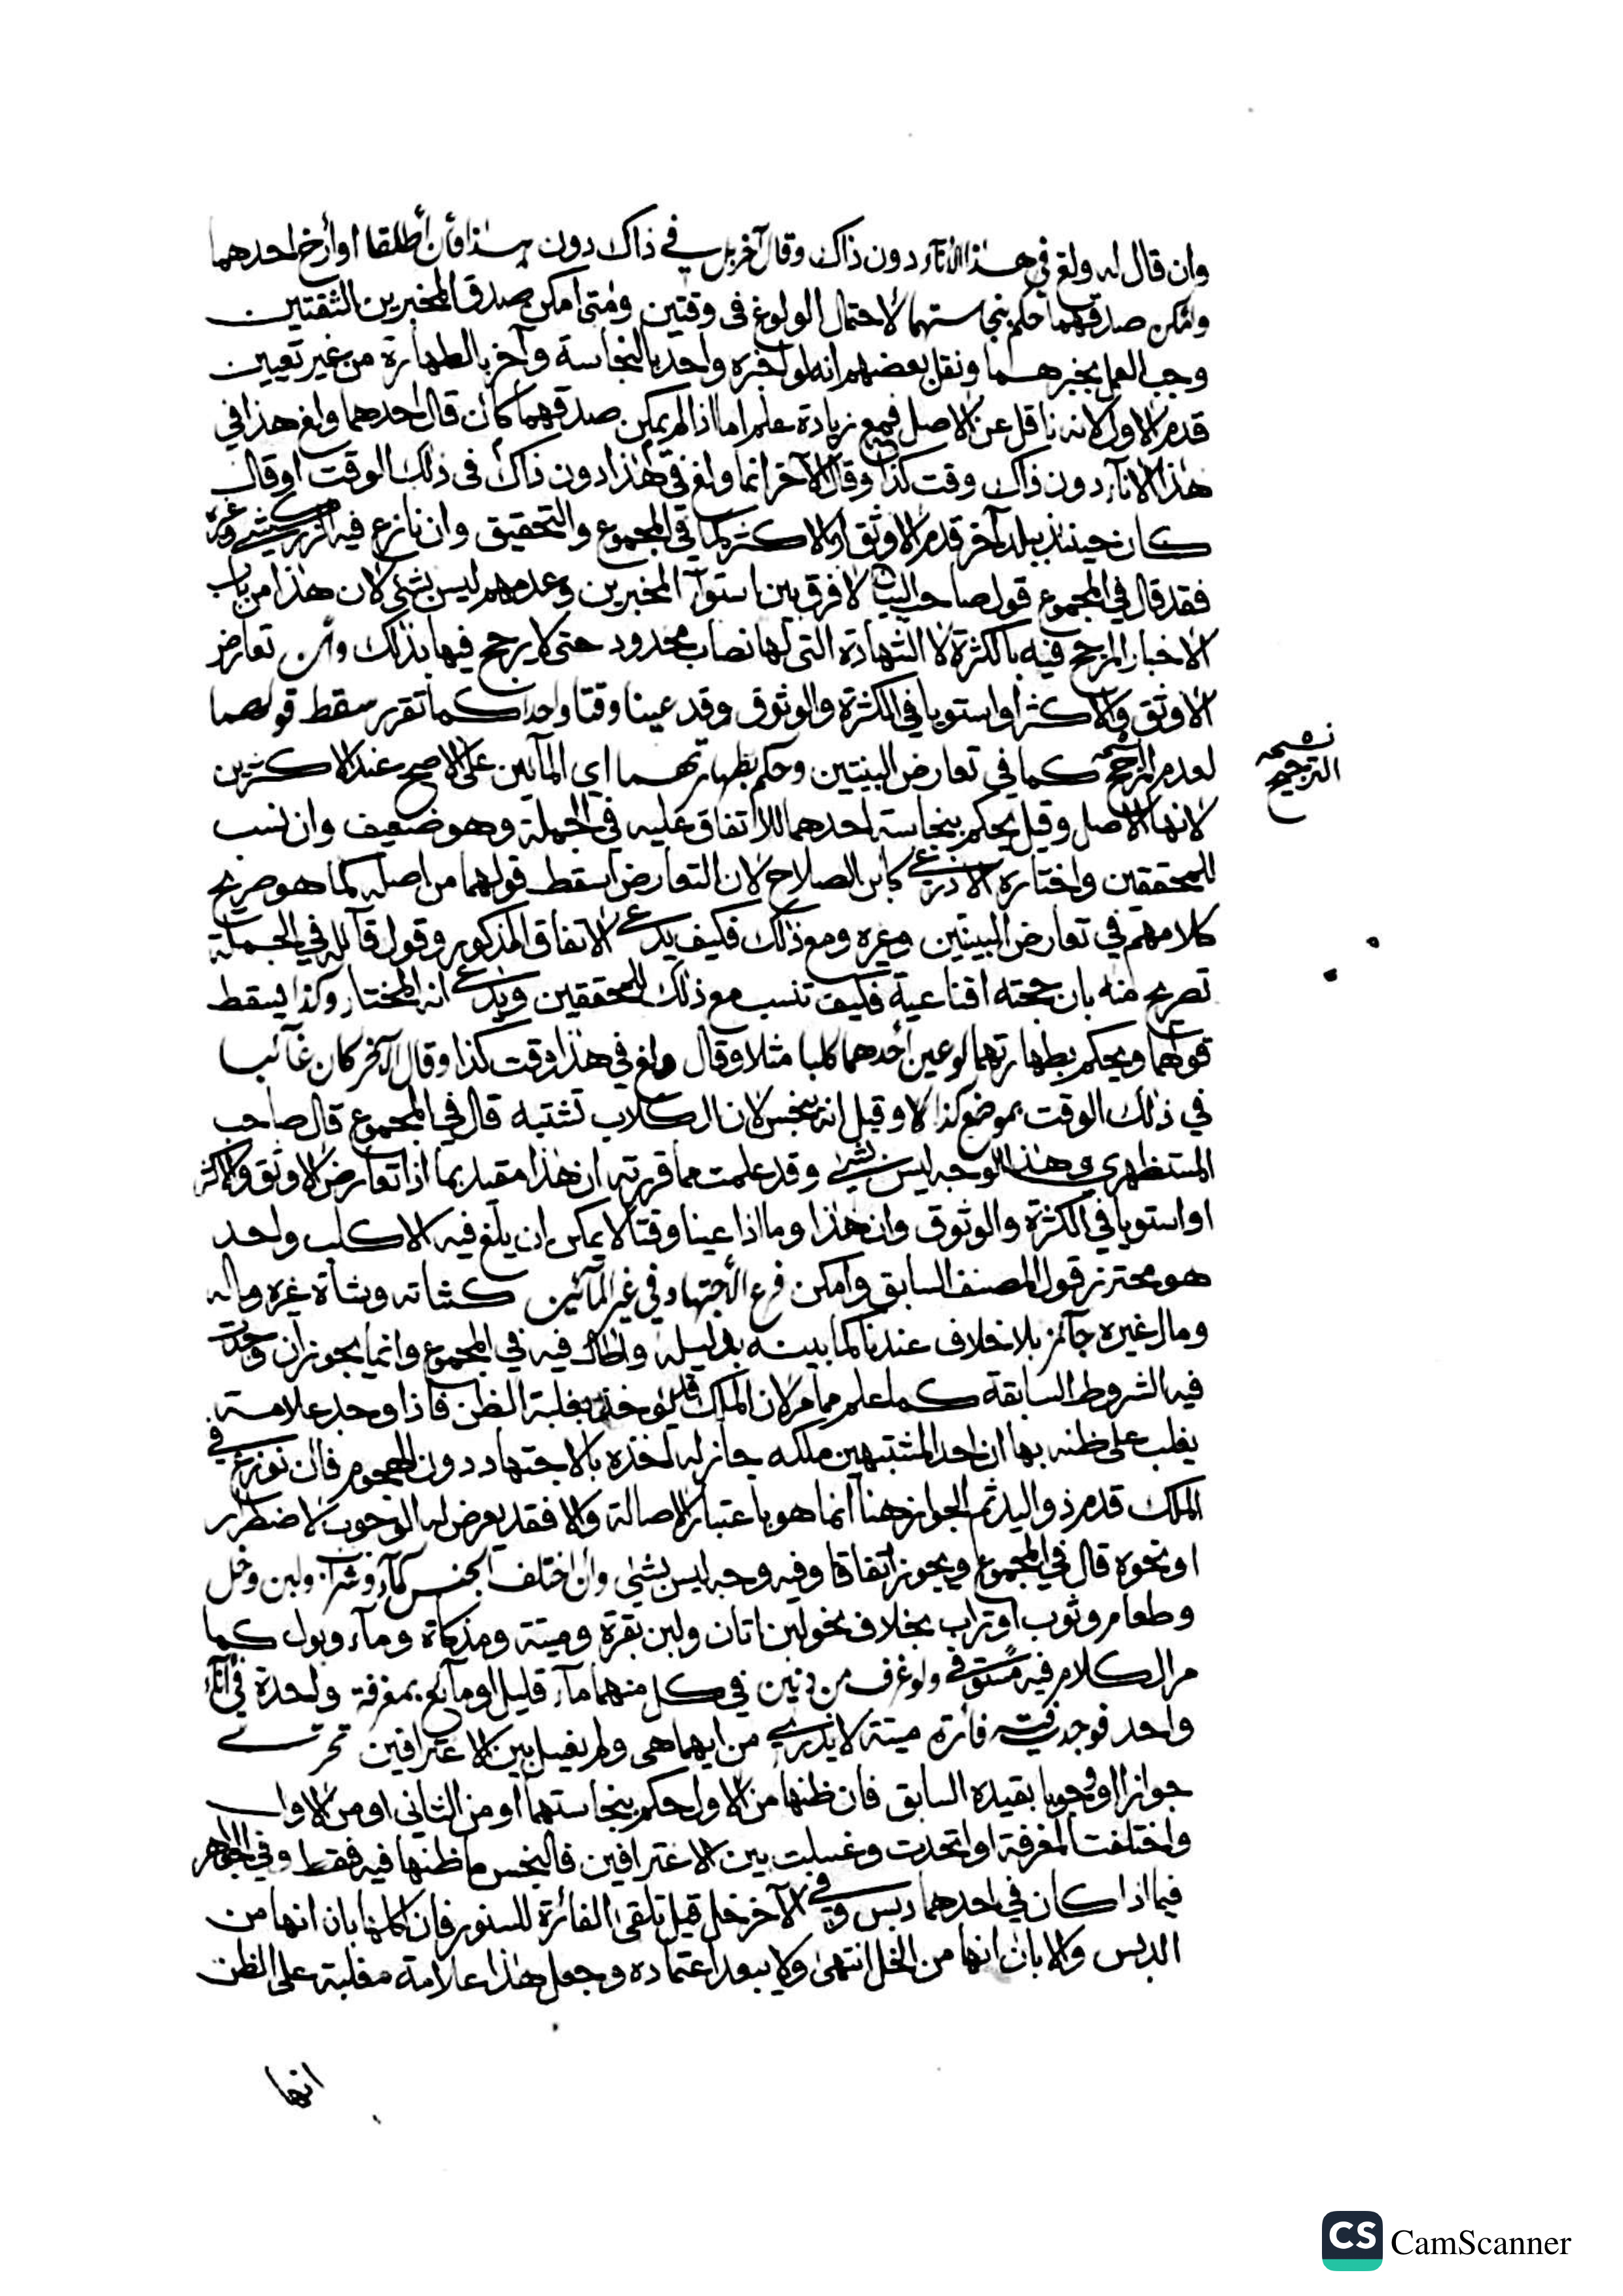 وان قال له ولغ في هذا الاناء دون ذاك وقال آخر بل في ذاك دون هذا فأن أطلقا أو أرخ احدهما
وامكن صدقهما حكم بنجاستهما لاحتمال الولوغ فى وقتين ومتى امكن صدق المخبرين الثقتين
وجب العمل بخبرهما ونقل بعضهم انه لو اخبره واحد بالنجاسة وآخر بالطهارة من غير تعيين
قدم الاول لانه ناقل عن الاصل فمع زيادة علم اما اذا لم يمكن صدقهما كأن قال احدهما ولغ هذا في
هذا الاناء دون ذاك وقت كذا وقال الآخر انما ولغ في هذا دون ذاك فى ذلك الوقت او قال
كان حينئذ ببلد آخر قدم الاوثق او الاكثر كما في المجموع والتحقيق وان نازع فيه الزركشي وغيره
فقد قال في المجموع قول صاحب البيان لا فرق بين استوآء المخبرين وعدمهم ليس بشئ لان هذا من باب
الاخبار المرجح فيه بالكثرة لا الشهادة التى لها نصاب محدود حتى لا يرجح فيها بذلك وأن تعارض
الاوثق والاكثر او استويا في الكثرة والوثوق وقد عينا وقتا واحدا كما تقرر سقط قولهما
لعدم المرجح كما في تعارض البينتين وحكم بطهارتهما اي المآئين على الاصح عند الاكثرين
لانها الاصل وقيل يحكم بنجاسة احدهما للاتفاق عليه في الجملة وهو ضعيف وان نسب
للمحققين واختاره الاذرعي كابن الصلاح لان التعارض اسقط قولهما من اصله كما هو صريح
كلامهم في تعارض البينتين وغيره ومع ذلك فكيف يدعي الاتفاق المذكور وقول قآئله في الجملة
تصريح منه بان حجته اقناعية فكيف تنسب مع ذلك للمحققين ويدعي انه المختار وكذا يسقط
قولهما ويحكم بطهارتهما لو عين أحدهما كلبا مثلا وقال ولغ في هذا وقت كذا وقال الآخر كان غآئبا
في ذلك الوقت بموضع كذا وقيل انه ينجس لان الكلاب تشتبه قال في المجموع قال صاحب
المستظهري وهذا الوجه ليس بشئ وقد علمت مما قررته ان هذا مقيد بما اذا تعارض الاوثق والاكثر
او استويا في الكثرة والوثوق وان هذا وما اذا عينا وقتا لا يمكن ان يلغ فيه الا كلب واحد
هو محترز قول المصنف السابق وامكن فرع الأجتهاد في غير المآئين كشاته وشاة غيره وماله
ومال غيره جآئز بلا خلاف عندنا كما بينه بدليله واطال فيه في المجموع وانما يجوز أن وجدت
فيه الشروط السابقة كما علم مما مر لان الملك قد يؤخذ بغلبة الظن فاذا وجد علامة
يغلب على ظنه بها ان احد المشتبهين ملكه جاز له اخذه بالاجتهاد دون الهجوم فان نوزع في
الملك قدم ذو اليد ثم الجواز هنا انما هو باعتبار الاصالة والا فقد يعرض له الوجوب لاضطرار
او نحوه قال في المجموع ويجوز اتفاقا وفيه وجه ليس بشئ وان اختلف الجنس كمآء وشراب ولبن وخل
وطعام وثوب او تراب بخلاف نحو لبن اتان ولبن بقرة وميتة ومذكاة ومآء وبول كما
مر الكلام فيه مستوفي ولو غرف من دنين في كل منهما مآء قليل او مآئع بمغرفة واحدة في انآء
واحد فوجد فيه فأرة ميتة لا يدري من ايهما هى ولم يغسل بين الاغترافين تحرى
جوازا او وجوبا بقيده السابق فان ظنها من الاول حكم بنجاستهما او من الثاني او من الاول
واختلفت المغرفة او اتحدت وغسلت بين الاغترافين فالنجس ما ظنها فيه فقط وفي الجواهر
فيما اذا كان في احدهما دبس وفي الآخر خل قيل تلقى الفأرة للسنور فان اكلها بان انها من
الدبس والا بان انها من الخل انتهى ولا يبعد اعتماده وجعل هذا علامة مغلبة على الظن
انها
نسخه
الترجيح
CS CamScanner